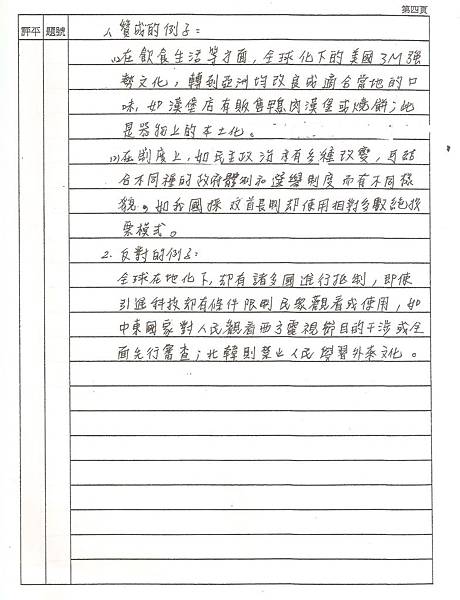 第四頁
評平 題號
1. 贊成的例子：
(1)在飲食生活等方面，全球化下的美國3M強
勢文化，轉到亞洲均改良成適合當地的口
味，如漢堡店有販售鴨肉漢堡或燒餅；此
是器物上的本土化。
(2)在制度上，如民主政治亦有多種改變，且結
合不同種的政府體制和選舉制度而有不同樣
貌。如我國採 首長制却使用相對多數絕
票模式。
2. 反對的例子：
全球在地化下，却有諸多國進行抵制，即使
引進科技却有條件限制民眾觀看或使用，如
中東國家對人民觀看西方電視節目的干涉或全
面先行審查；北韓則禁止人民學習外來文化。